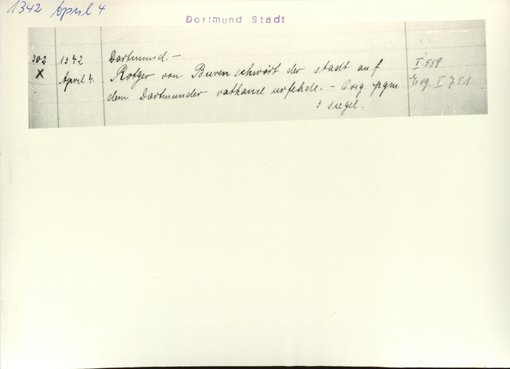 1342 April 4
Dortmund Stadt
302 1342 Dortmund.-
X April 4. Rotger von Buren schwört der stadt auf I 558
dem Dortmunder rathause urfehde. - Orig. pgm. Erg. I 751
3 siegel.